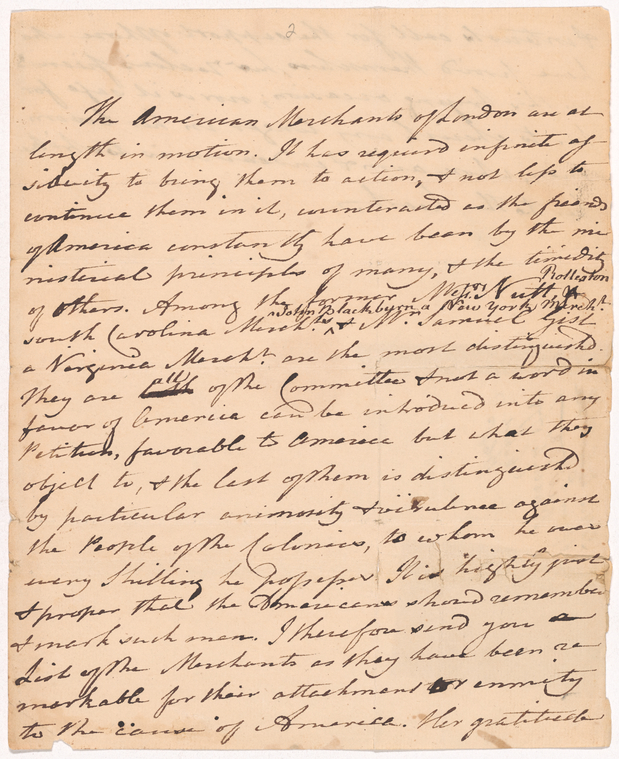 2
The American Merchants of London are at
length in motion. It has requird infinite as
siduity to bring them to action, & not less to
continue them in it, counteracted as the friends
of America constantly have been by the mi
nisterial principles of many, & the timidity
of others. Among the former Messrs. Nutt &
Rolleston
south Carolina Mercht. ^ & Mr. Samuel Gist
John Blackburn a New York Mercht.
a Virginia Mercht. are the most distinguishd.
They are all of the Committee & not a word in
favor of America can be introduced into any
Petition, favorable to America but what they
object to, & the last of them is distinguishd
by particular animosity & virulence against
the People of the Colonies, to whom he owes
every Shilling he possesses. It is highly just
& proper that the Americans should remember
& mark such men. I therefore send you a
List of the Merchants as they have been re
markable for their attachment or enmity
to the "cause" of America. Her gratitude